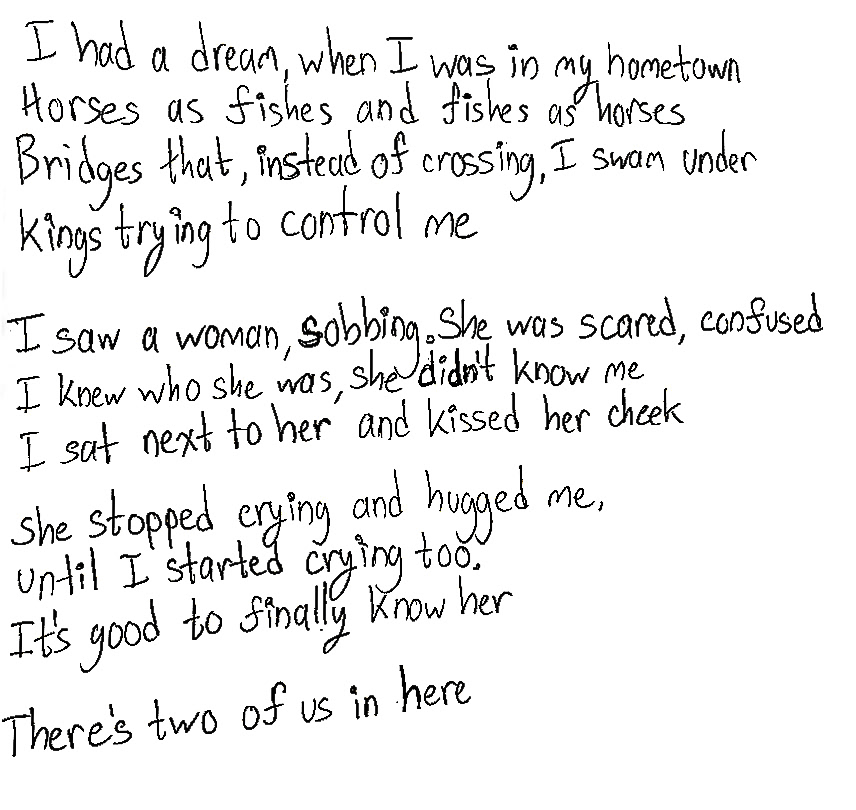 I had a dream, when I was in my hometown
Horses as fishes and fishes as horses
Bridges that, instead of crossing, I swam under
Kings trying to control me
I saw a woman, sobbing. She was scared, confused
I knew who she was, she didn't know me
I sat next to her and kissed her cheek
She stopped crying and hugged me,
until I started crying too.
It's good to finally know her
There's two of us in here